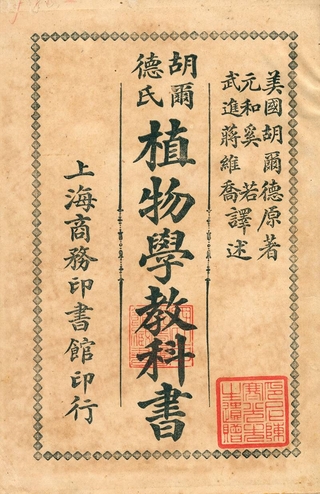 美國胡爾德原著
元和奚若
武進蔣維喬譯述
胡爾
德氏
植物學教科書
上海商務印書館印行